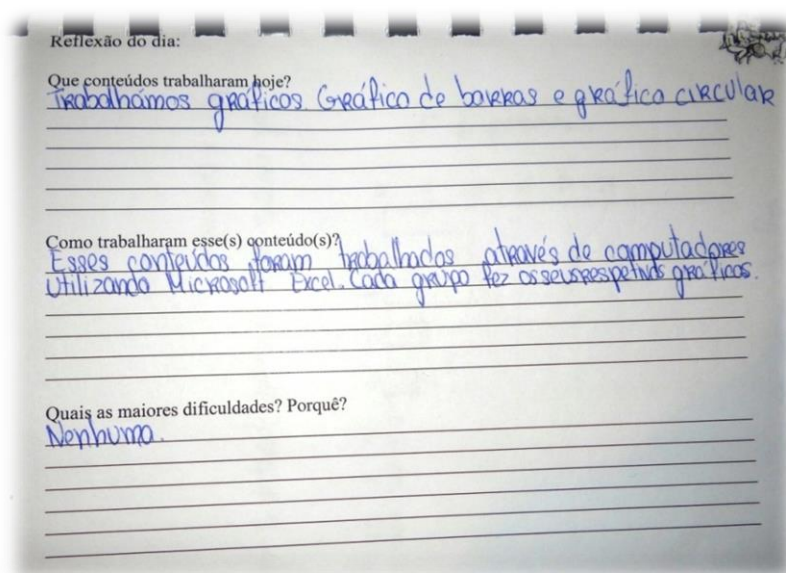 Reflexão do dia:
Que conteúdos trabalharam hoje?
Trabalhámos gráficos Gráfico de barras e gráfico circular
Como trabalharam esse(s) conteúdo(s)?
Esses conteúdos foram trabalhados através de computadores
Utilizando Microsoft Excel. Cada grupo fez os seus respetivos gráficos.
Quais as maiores dificuldades? Porquê?
Nenhuma.